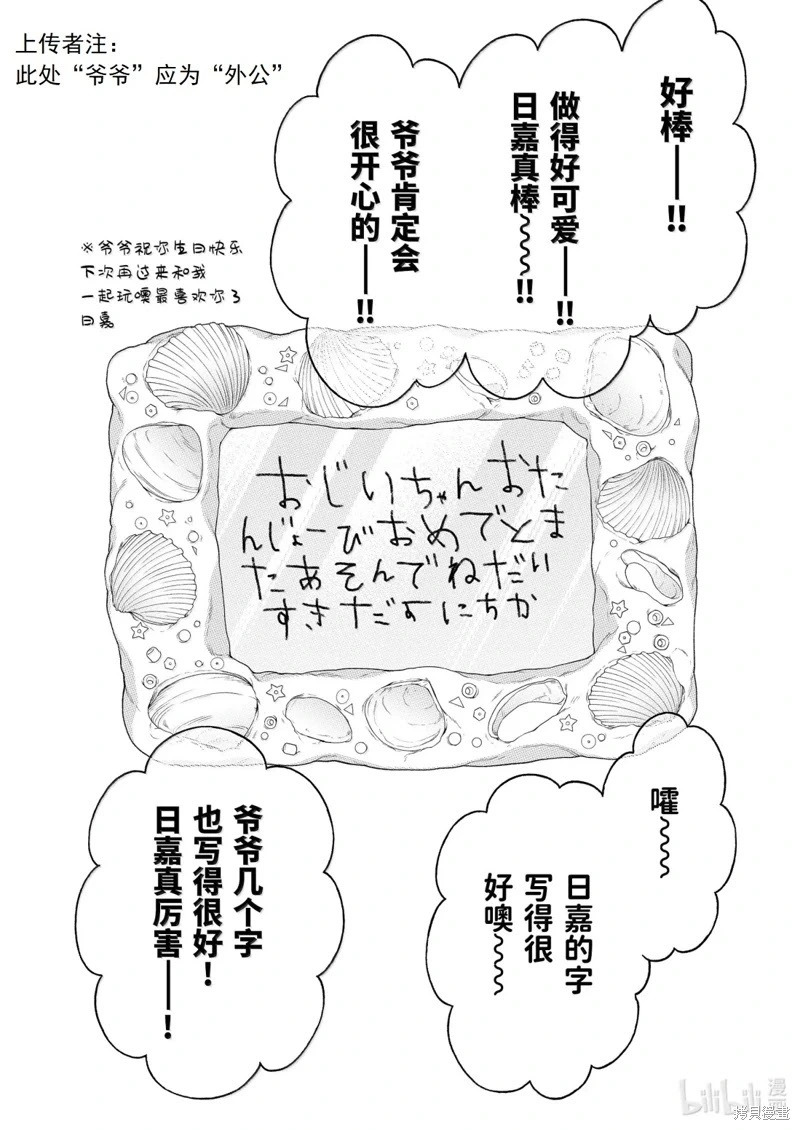 上传者注：
此处“爷爷”应为“外公”
好棒——!!
做得好可爱——!!
日嘉真棒～～!!
爷爷肯定会
很开心的——!!
※爷爷祝你生日快乐
下次再过来和我
一起玩噢最喜欢你了
日嘉
おじいちゃんおた
んじょーびおめでとま
たあそんでねだい
すきだすにちか
嚯～～
日嘉的字
写得很
好噢～～
爷爷几个字
也写得很好！
日嘉真厉害——！
bilibili漫画
拷贝漫畫